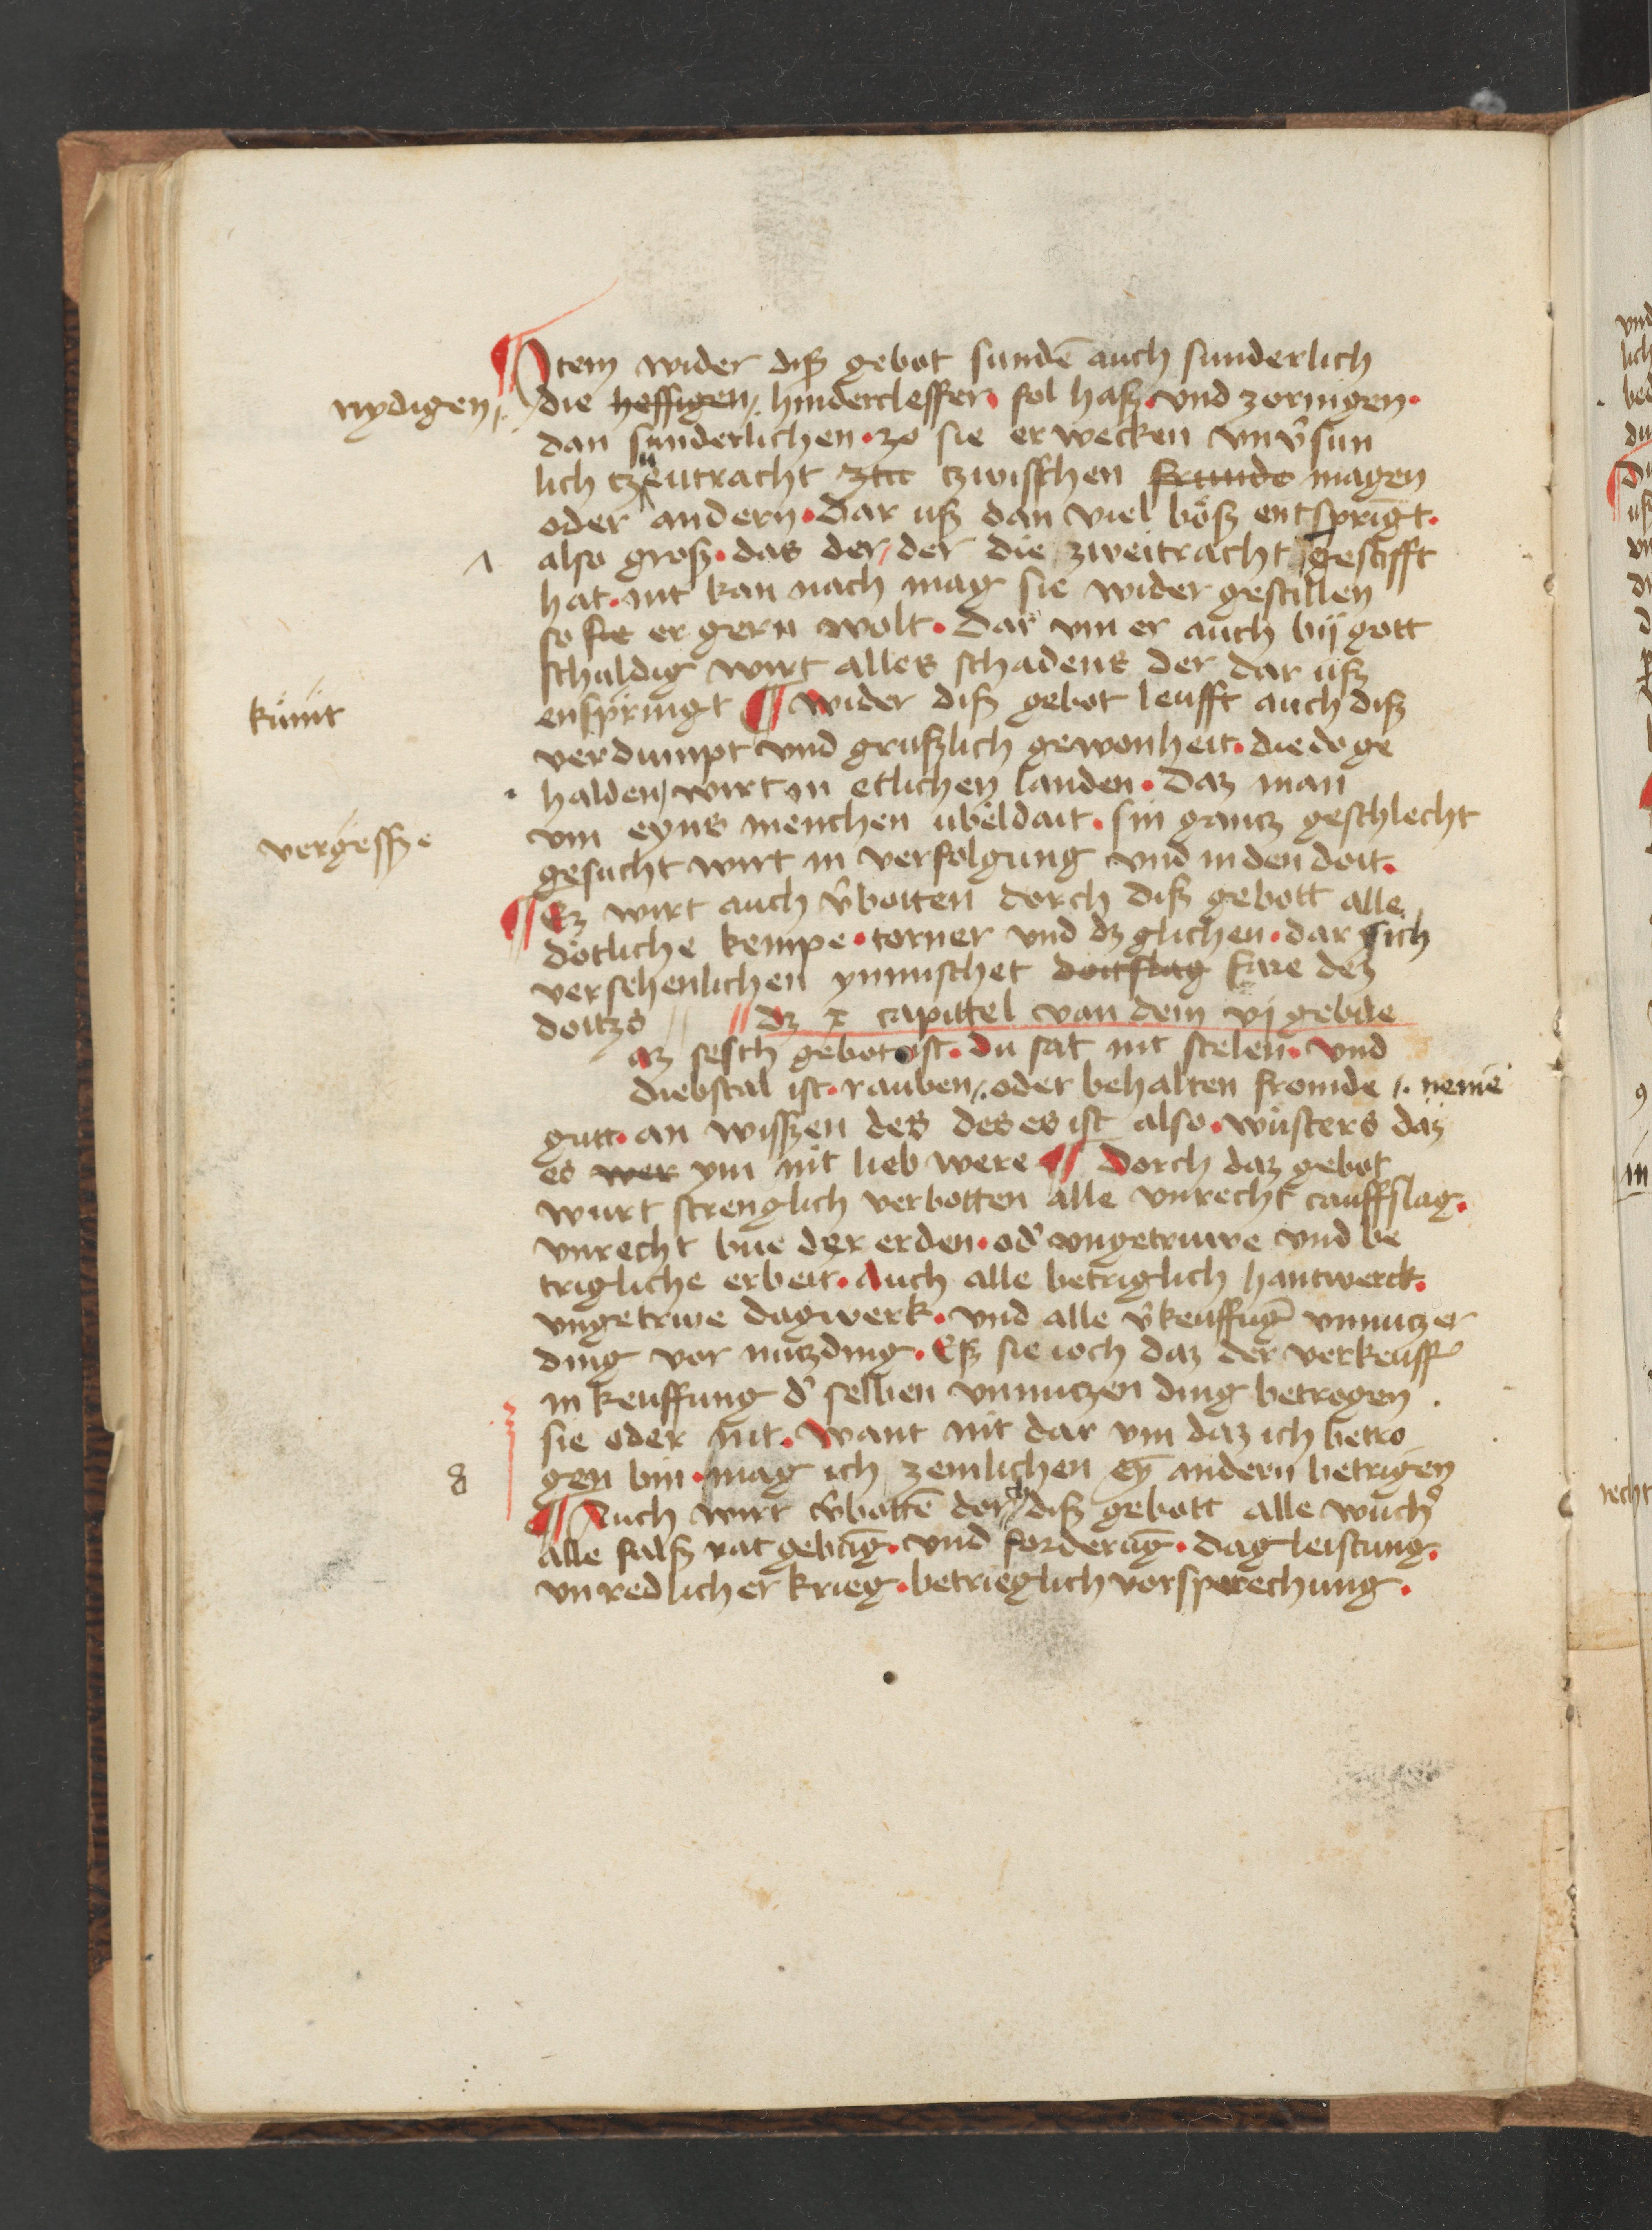 Item wider diſz gebot sundē auch sunderlich
nydigen
die heffigen hindercleffer fol haſz vnd zornigen
dan sunderlichen zo sie er wecken vnv̄sun
lich tzeutracht ztu tzwiſſhen frunde magen
oder andern dar uſz dan viel böſz entspringt
also groſz das der der die zweitracht gestifft
hat nit kan nach mag sie wider gestillen
so sie er gern wolt Dar vm er auch bij gott
schuldig wirt alles schadens der dar uſz
kümt
enspringt wider diſz gebot leufft auch diſz
verdumpt vnd gruſzlich gewonheit die do ge
halden wirt in etlichen landen Daz man
vm eyns menchen ubeldait sin gantz geschlecht
vergeſſze
gesucht wirt in verfolgung vnd in den doit
Ez wirt auch v̄botten dorch diſz gebott alle
dötliche kempe torner vnd dz glichen dar sich
versehenlichen ynmischet doitslag fare dez
doitzs dz x capittel van dem vj gebode
az sesth gebot ist du sat nit stelen vnd
diebstal ist rauben oder behalten fromde nemē
gutt an wiſſzen des des es ist also wüsters daz
es wer ym nit lieb were Dorch daz gebot
wurt strenglich verbotten alle vnrecht cauffslag
vnrecht bue der erden od' vngetruwe vnd be
trigliche erbeit Auch alle betriglich hantwerck
vngetrwe dagwerk vnd alle v̄keuffūg vnnutzer
ding vor nutzding Eſz sie ioch daz der verkeuff'
in keuffung d' selben vnnutzen ding betrogen
sie oder nit want nit dar vm daz ich betro
gen bin mag ich zemlichen eȳ andern betrigen
Auch wirt v̄bottē dorch diſz gebott alle wuch'
alle falſz rat gebūg vnd forderūg dagleistung
vnredlicher krieg betrieglich vorsperechung